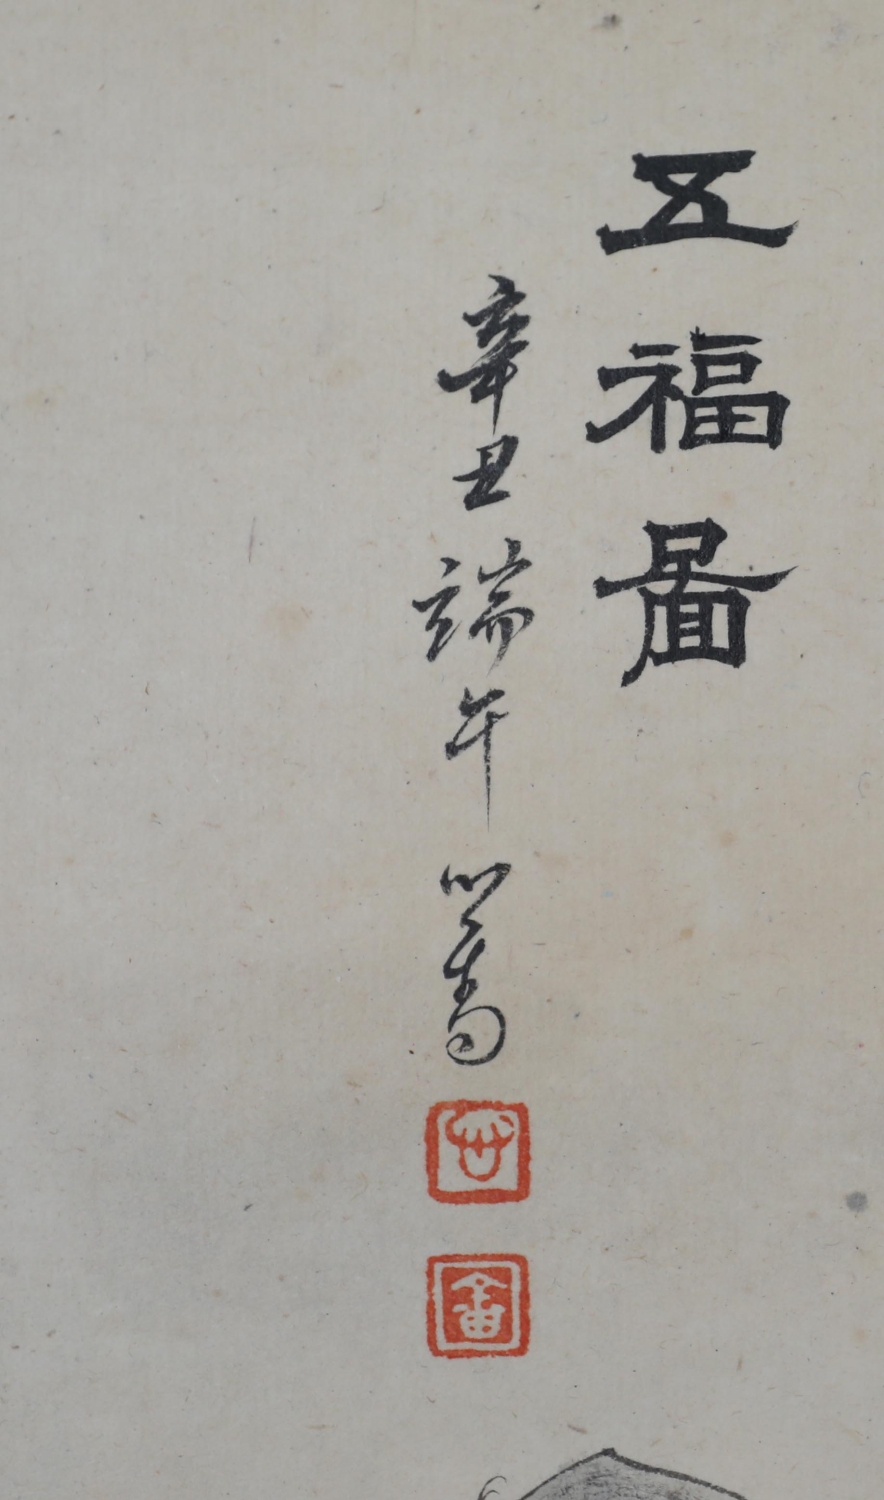 五福圖
辛丑端午心畬